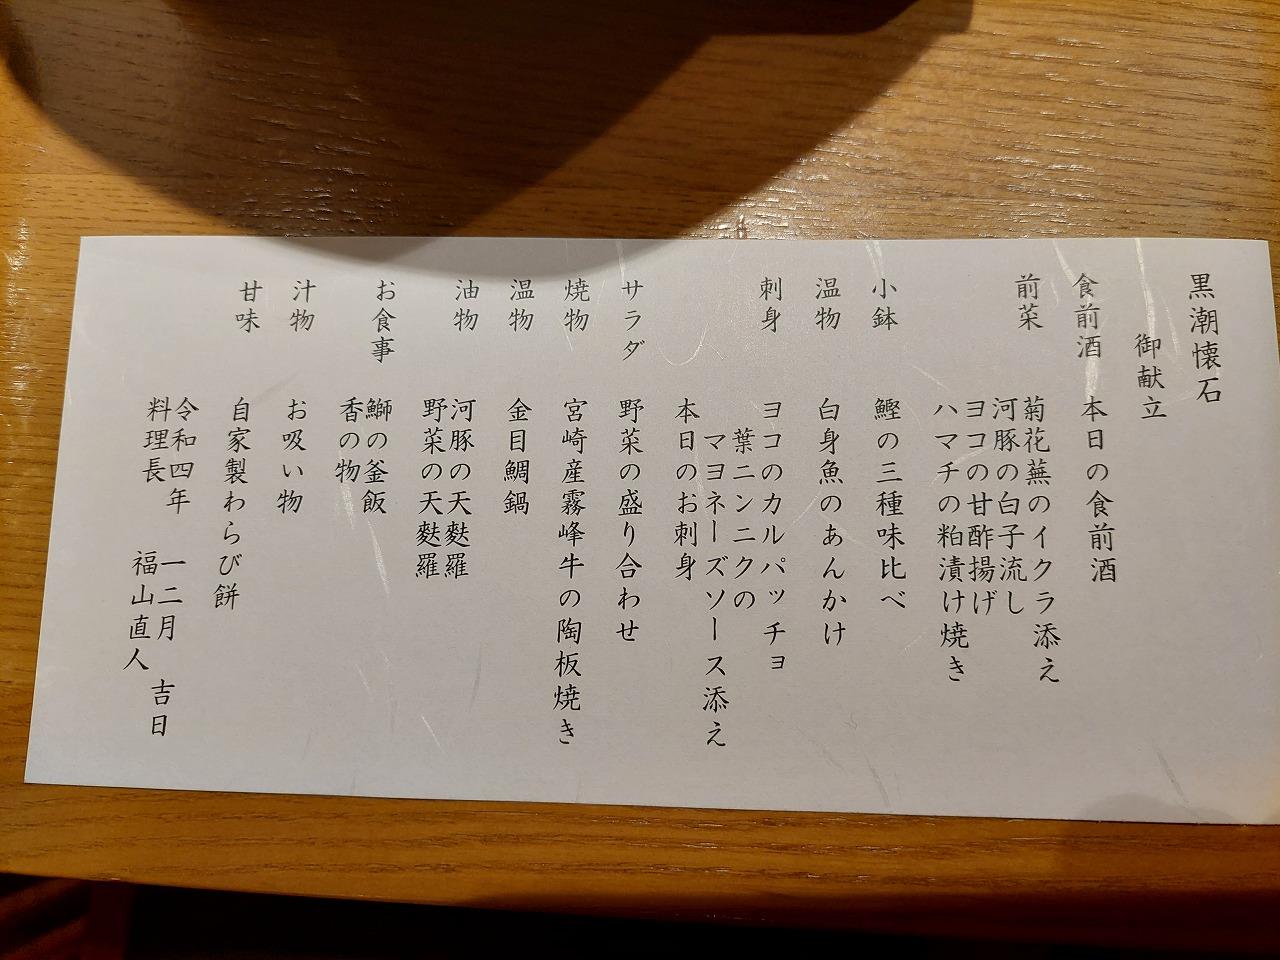 黒潮懐石
御献立
食前酒 本日の食前酒
前菜 菊花蕪のイクラ添え
河豚の白子流し
ヨコの甘酢揚げ
ハマチの粕漬け焼き
小鉢 鰹の三種味比べ
温物 白身魚のあんかけ
刺身 ヨコのカルパッチョ
葉ニンニクの
マヨネーズソース添え
本日のお刺身
サラダ 野菜の盛り合わせ
焼物 宮崎産霧峰牛の陶板焼き
温物 金目鯛鍋
油物 河豚の天麩羅
野菜の天麩羅
お食事 鰤の釜飯
香の物
汁物 お吸い物
甘味 自家製わらび餅
令和四年 一二月 吉日
料理長 福山直人